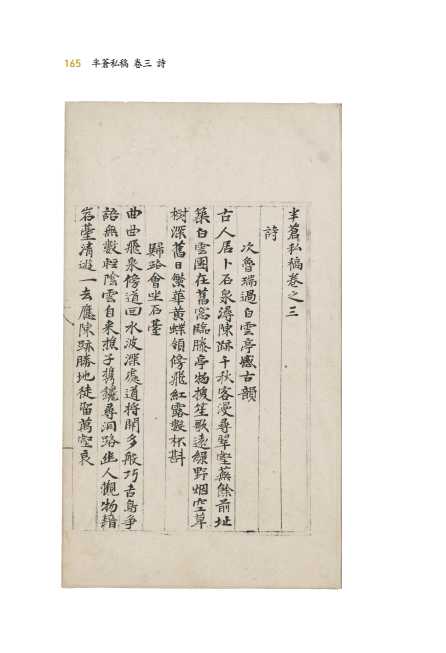 165 半蒼私稿 卷三 詩
半蒼私稿卷之三
詩
次魯瑞過白雲亭感古韻
古人居卜石泉潯陳跡千秋客漫尋翠壁蕪餘前址
築白雲圍在舊窓臨勝亭物換笙歌遠綠野烟空草
樹深舊日繁華黃蝶領傍飛紅露裂杯斟
歸路會坐石臺
曲曲飛泉傍道回水波深處道將開多般巧舌鳥爭
語無數輕陰雲自来樵子携鑱尋洞路幽人觀物藉
岩臺清遊一去應陳跡勝地徒留萬壑哀